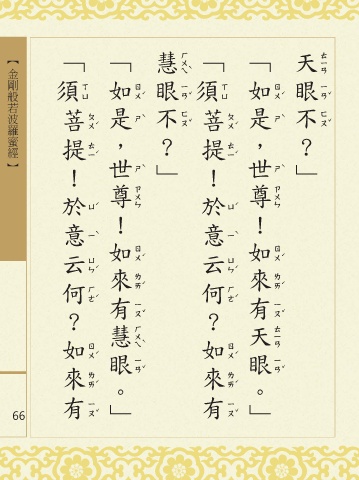 天眼不？」
「如是，世尊！如來有天眼。」
「須菩提！於意云何？如來有
慧眼不？」
「如是，世尊！如來有慧眼。」
「須菩提！於意云何？如來有
【金剛般若波羅蜜經】
66